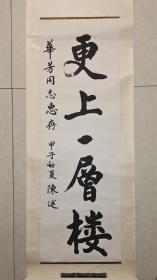 更上一層楼
華芳同志惠存 甲子初夏 陳述